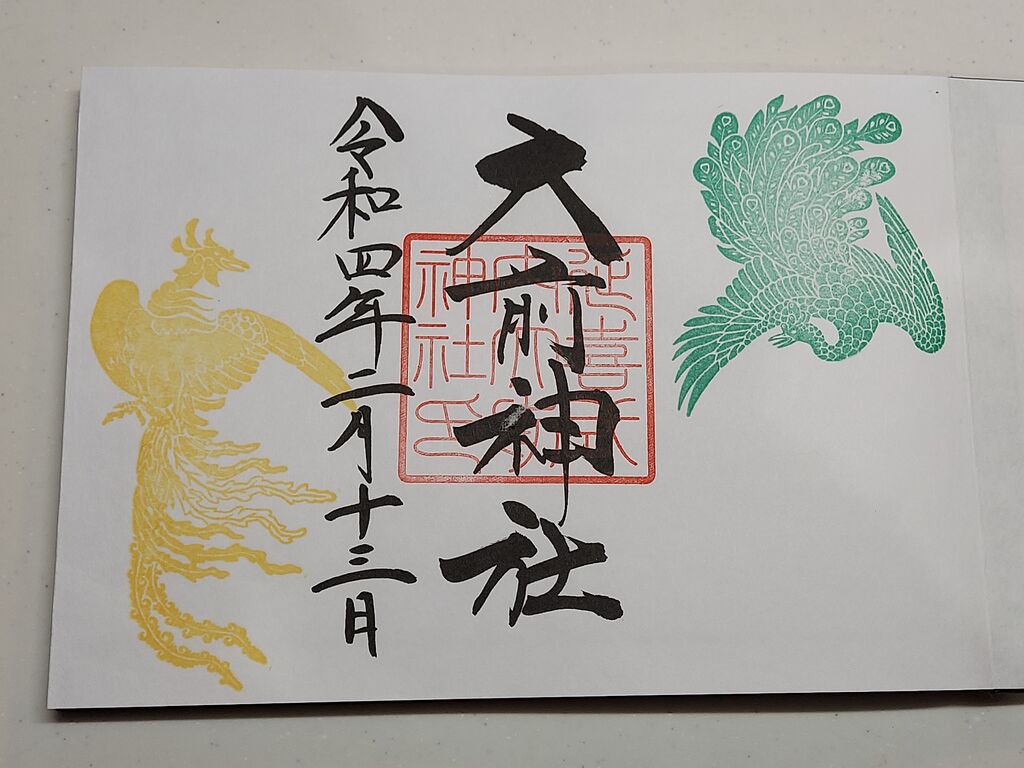 大前神社
延喜式
内大前
神社印
令和四年二月十三日